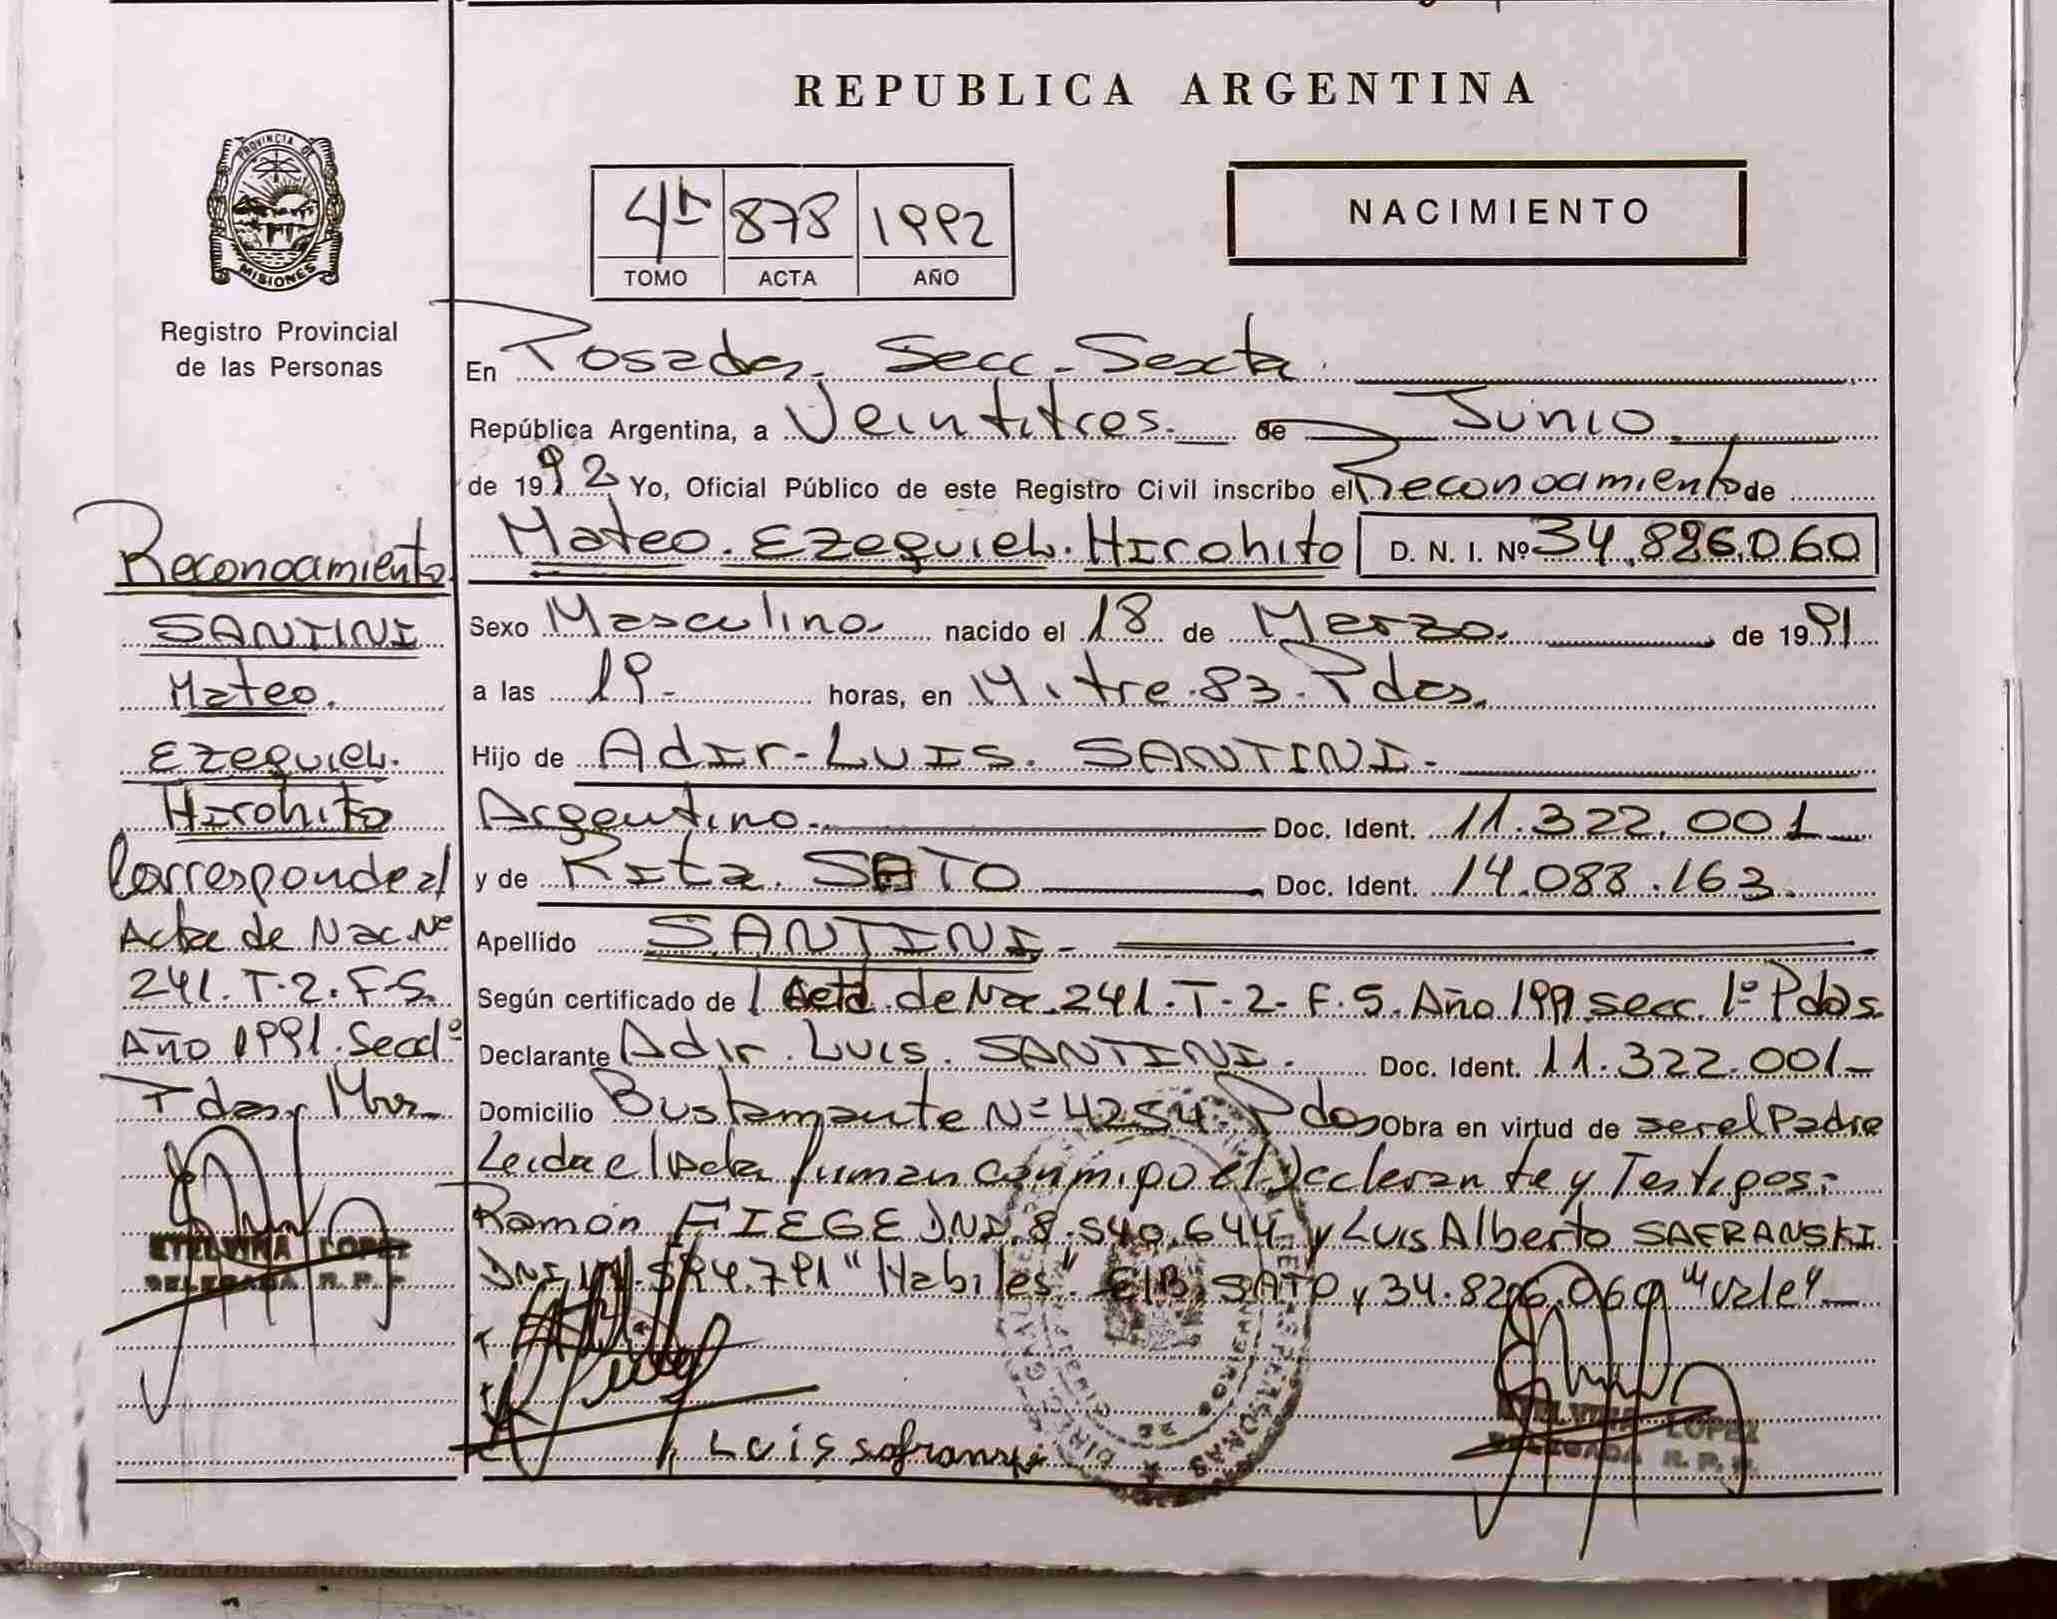 REPUBLICA ARGENTINA
PROVINCIA DE
MISIONES
Registro Provincial
de las Personas
4º 878 1992
TOMO ACTA AÑO
NACIMIENTO
En Posadas. Secc. Sexta
República Argentina, a Veintitres. de Junio
de 1992 Yo, Oficial Público de este Registro Civil inscribo el Reconocimiento de
Mateo. Ezequiel. Hirohito D. N. I. Nº 34.826.060
Sexo Masculino nacido el 18 de Marzo de 1991
a las 19- horas, en Mitre. 83. Pdas.
Hijo de Adir-Luis. SANTINI-
Argentino. Doc. Ident. 11.322.001
y de Rita. SATO Doc. Ident. 14.088.163.
Apellido SANTINI-
Según certificado de Acta de Nac. 241. T-2- F. 5. Año 1991 secc. 1º Pdas
Declarante Adir. Luis. SANTINI. Doc. Ident. 11.322.001-
Domicilio Bustamante Nº 4254. Pdas Obra en virtud de ser el Padre
Leida el Acta firman conmigo el Declarante y Testigos:
Ramón FIEGE DNI. 8.540.644 y Luis Alberto SAFRANSKI
DNI 14.594.791 "Habiles". E/B: SATO y 34.826.060 "Vale"
Luis Safranski
ETELVINA LOPEZ
DELEGADA R. P. P.
Reconocimiento
SANTINI
Mateo.
Ezequiel.
Hirohito
Corresponde al
Acta de Nac. Nº
241. T. 2. F. 5.
Año 1991. Secc 1º
Pdas. Mnes
ETELVINA LOPEZ
DELEGADA R. P. P.